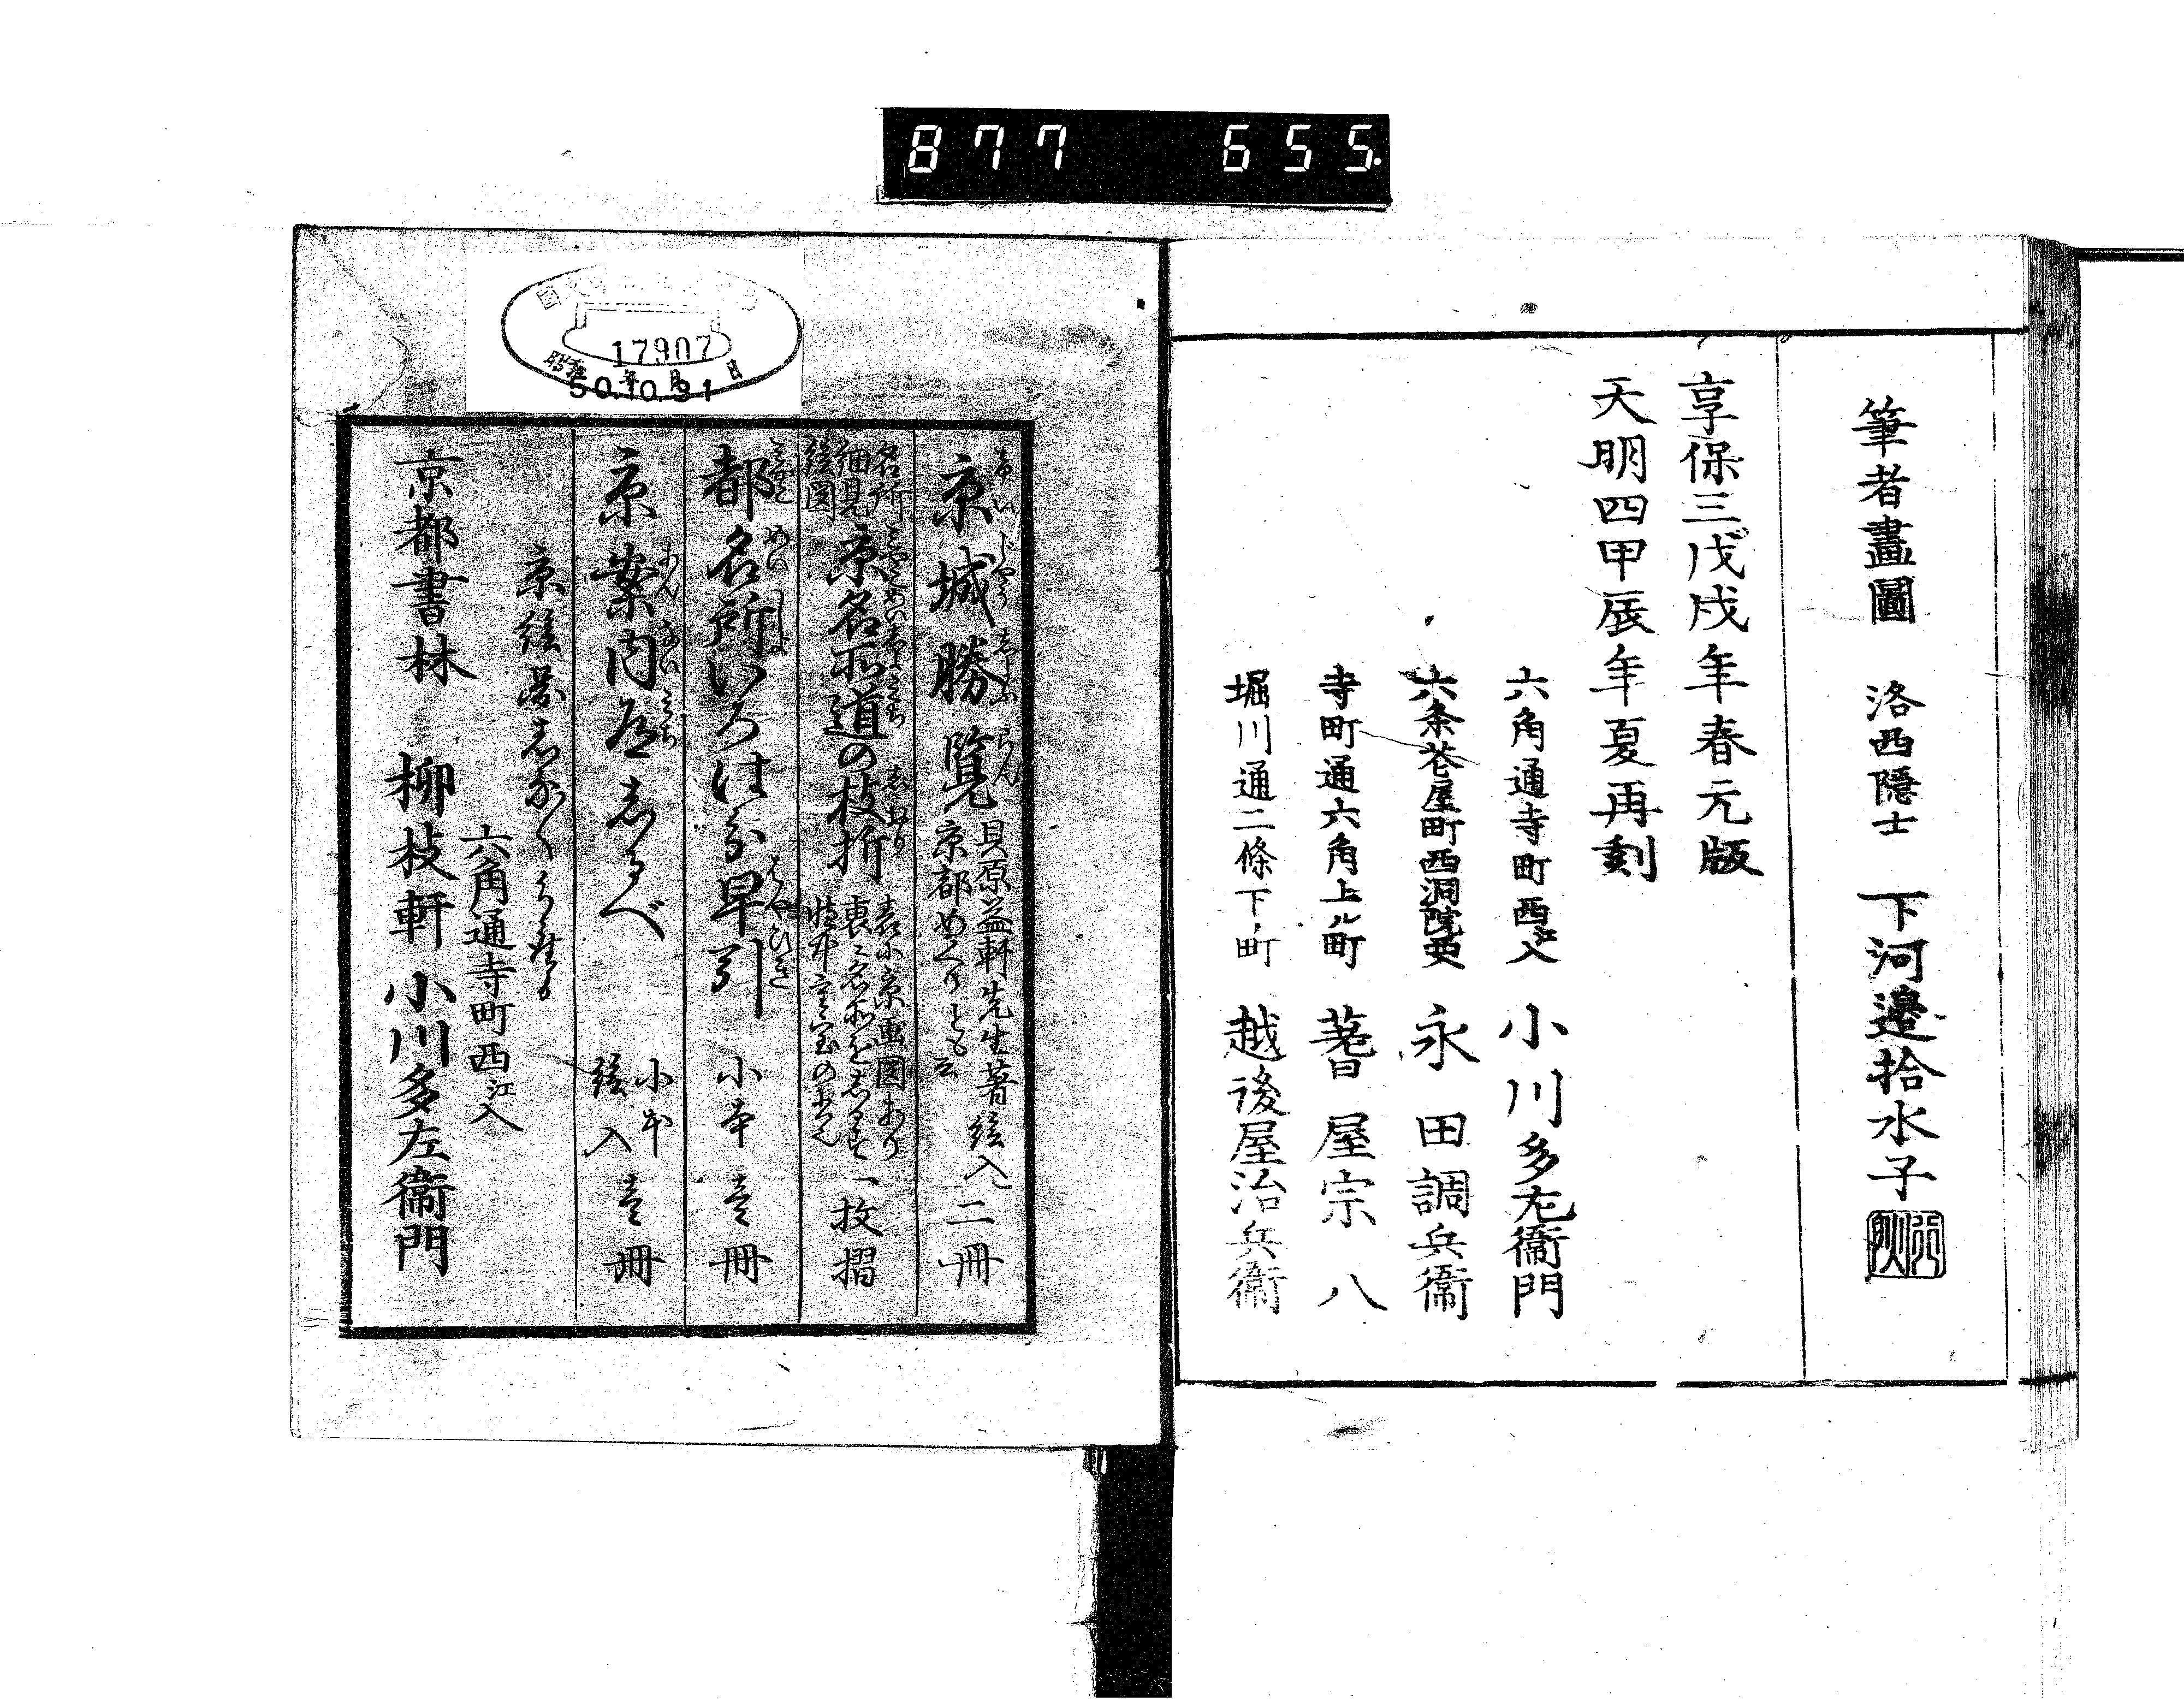 877 655.
筆者畫圖 洛西隱士 下河邊拾水子
享保三戊戌年春元版
天明四甲辰年夏再刻
六角通寺町西江入 小川多左衞門
六条若屋町西洞院西 永田調兵衞
寺町通六角上ル町 蓍屋宗八
堀川通二條下町 越後屋治兵衞
17907
昭和 年 月 日
50.10.31
京城勝覽 貝原益軒先生著 絵入 二冊
けいじやうしようらん
京都めぐりとも云
名所細見絵図 京名所道の枝折 一枚摺
表に京画図あり
裏に名所を志るす
都名所いろは分早引 小本 壱冊
みやこめいしよ はやひき
京案内道志るべ 小本 絵入 壱冊
あんないみち
京絵図志な〴〵
六角通寺町西江入
京都書林 柳枝軒 小川多左衞門